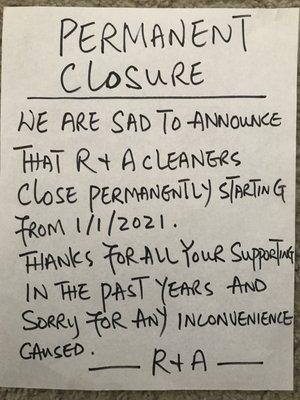 PERMANENT
CLOSURE
WE ARE SAD TO ANNOUNCE
THAT R + A CLEANERS
CLOSE PERMANENTLY STARTING
FROM 1/1/2021.
THANKS FOR ALL YOUR SUPPORTING
IN THE PAST YEARS AND
SORRY FOR ANY INCONVENIENCE
CAUSED.
— R+A —